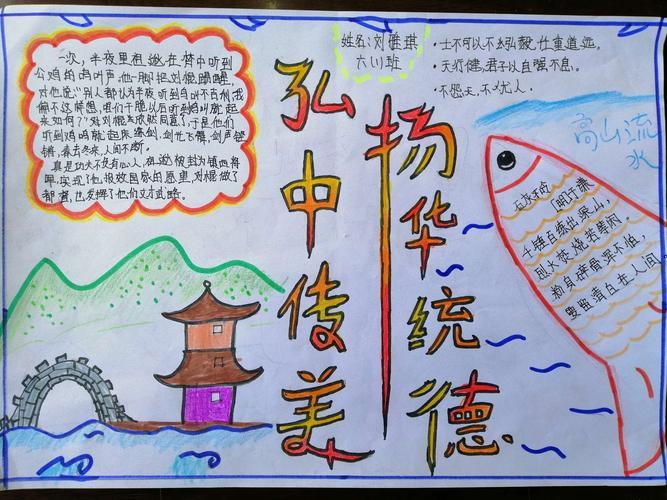 一次,半夜里祖逖在梦中听到
公鸡的鸣叫声,他一脚把刘琨踢醒,
对他说:"别人都认为半夜听到鸡叫不吉利,我
偏不这样想,咱们干脆以后听到鸡叫就起
来如何?"刘琨欣然同意了,于是他们
听到鸡鸣就起床练剑,剑光飞舞,剑声铿
锵,春去冬来,人间不断。
真是功夫不负有心人,祖逖被封为镇西将
军,实现了他报效国家的愿望,刘琨做了
都督,也发挥了他们文才武略。
姓名:刘雅琪
六(1)班
·士不可以不弘毅,任重道远。
·天行健,君子以自强不息。
·不怨天,不忧人.
弘扬
中华
传统
美德
高山流
水
石灰吟 [明]于谦
千锤百练出深山,
烈火焚烧若等闲
粉身碎骨浑不怕,
要留清白在人间